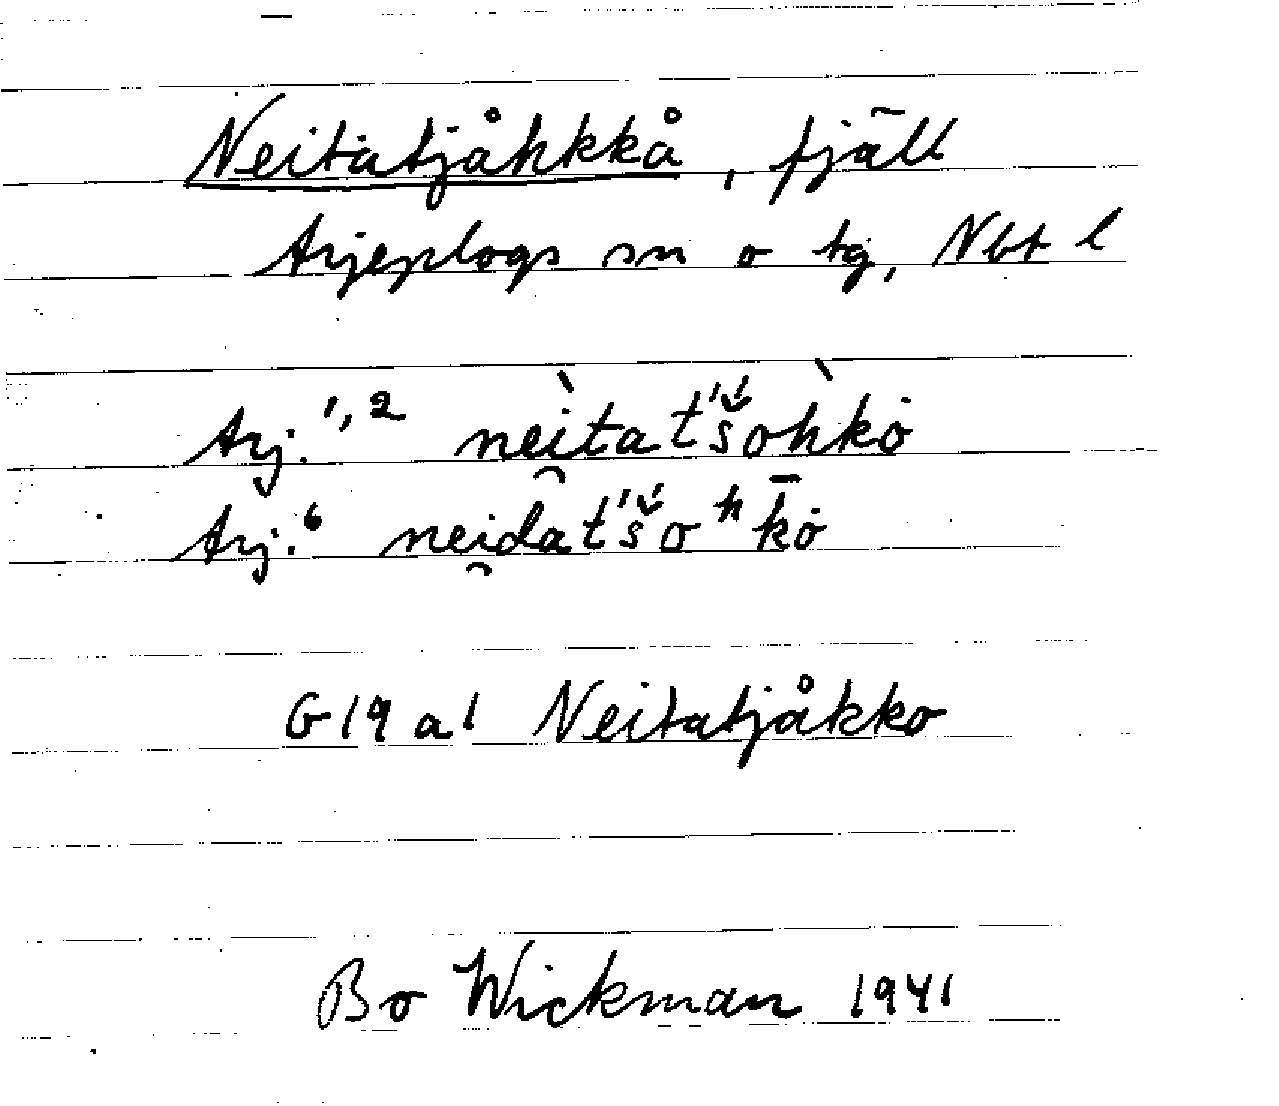 Neitatjåhkkå, fjäll
Arjeplogs sn o tg, Nbt l
Arj.1,2 nei̯tàt́š́ohkȯ̀
Arj.6 nei̯dat́š́oʰk̄ȯ
G19a1 Neitatjåkko
Bo Wickman 1941